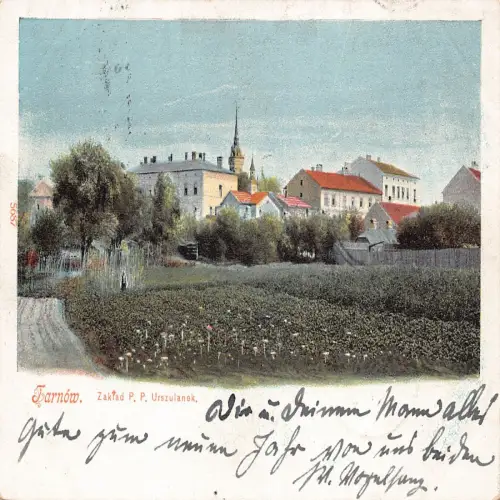 5687
Tarnów. Zakład P. P. Urszulanek.
Dir u. Deinem Mann alles
Gute zum neuen Jahr von uns beiden
W. Vogelsang.